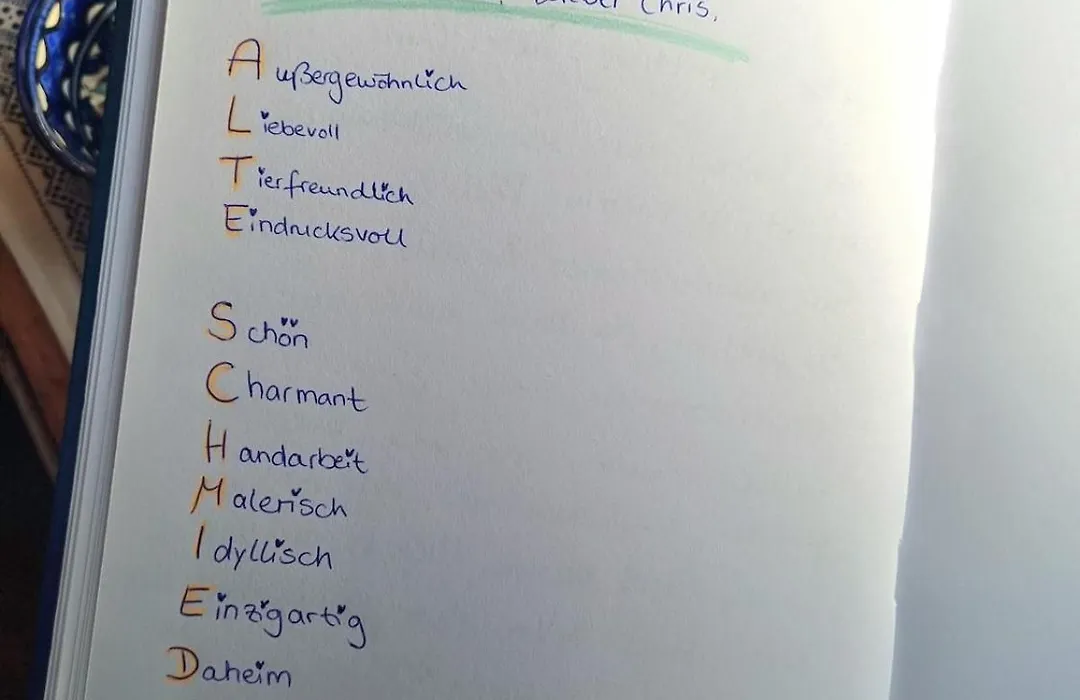 Chris,
Außergewöhnlich
Liebevoll
Tierfreundlich
Eindrucksvoll
Schön
Charmant
Handarbeit
Malerisch
Idyllisch
Einzigartig
Daheim